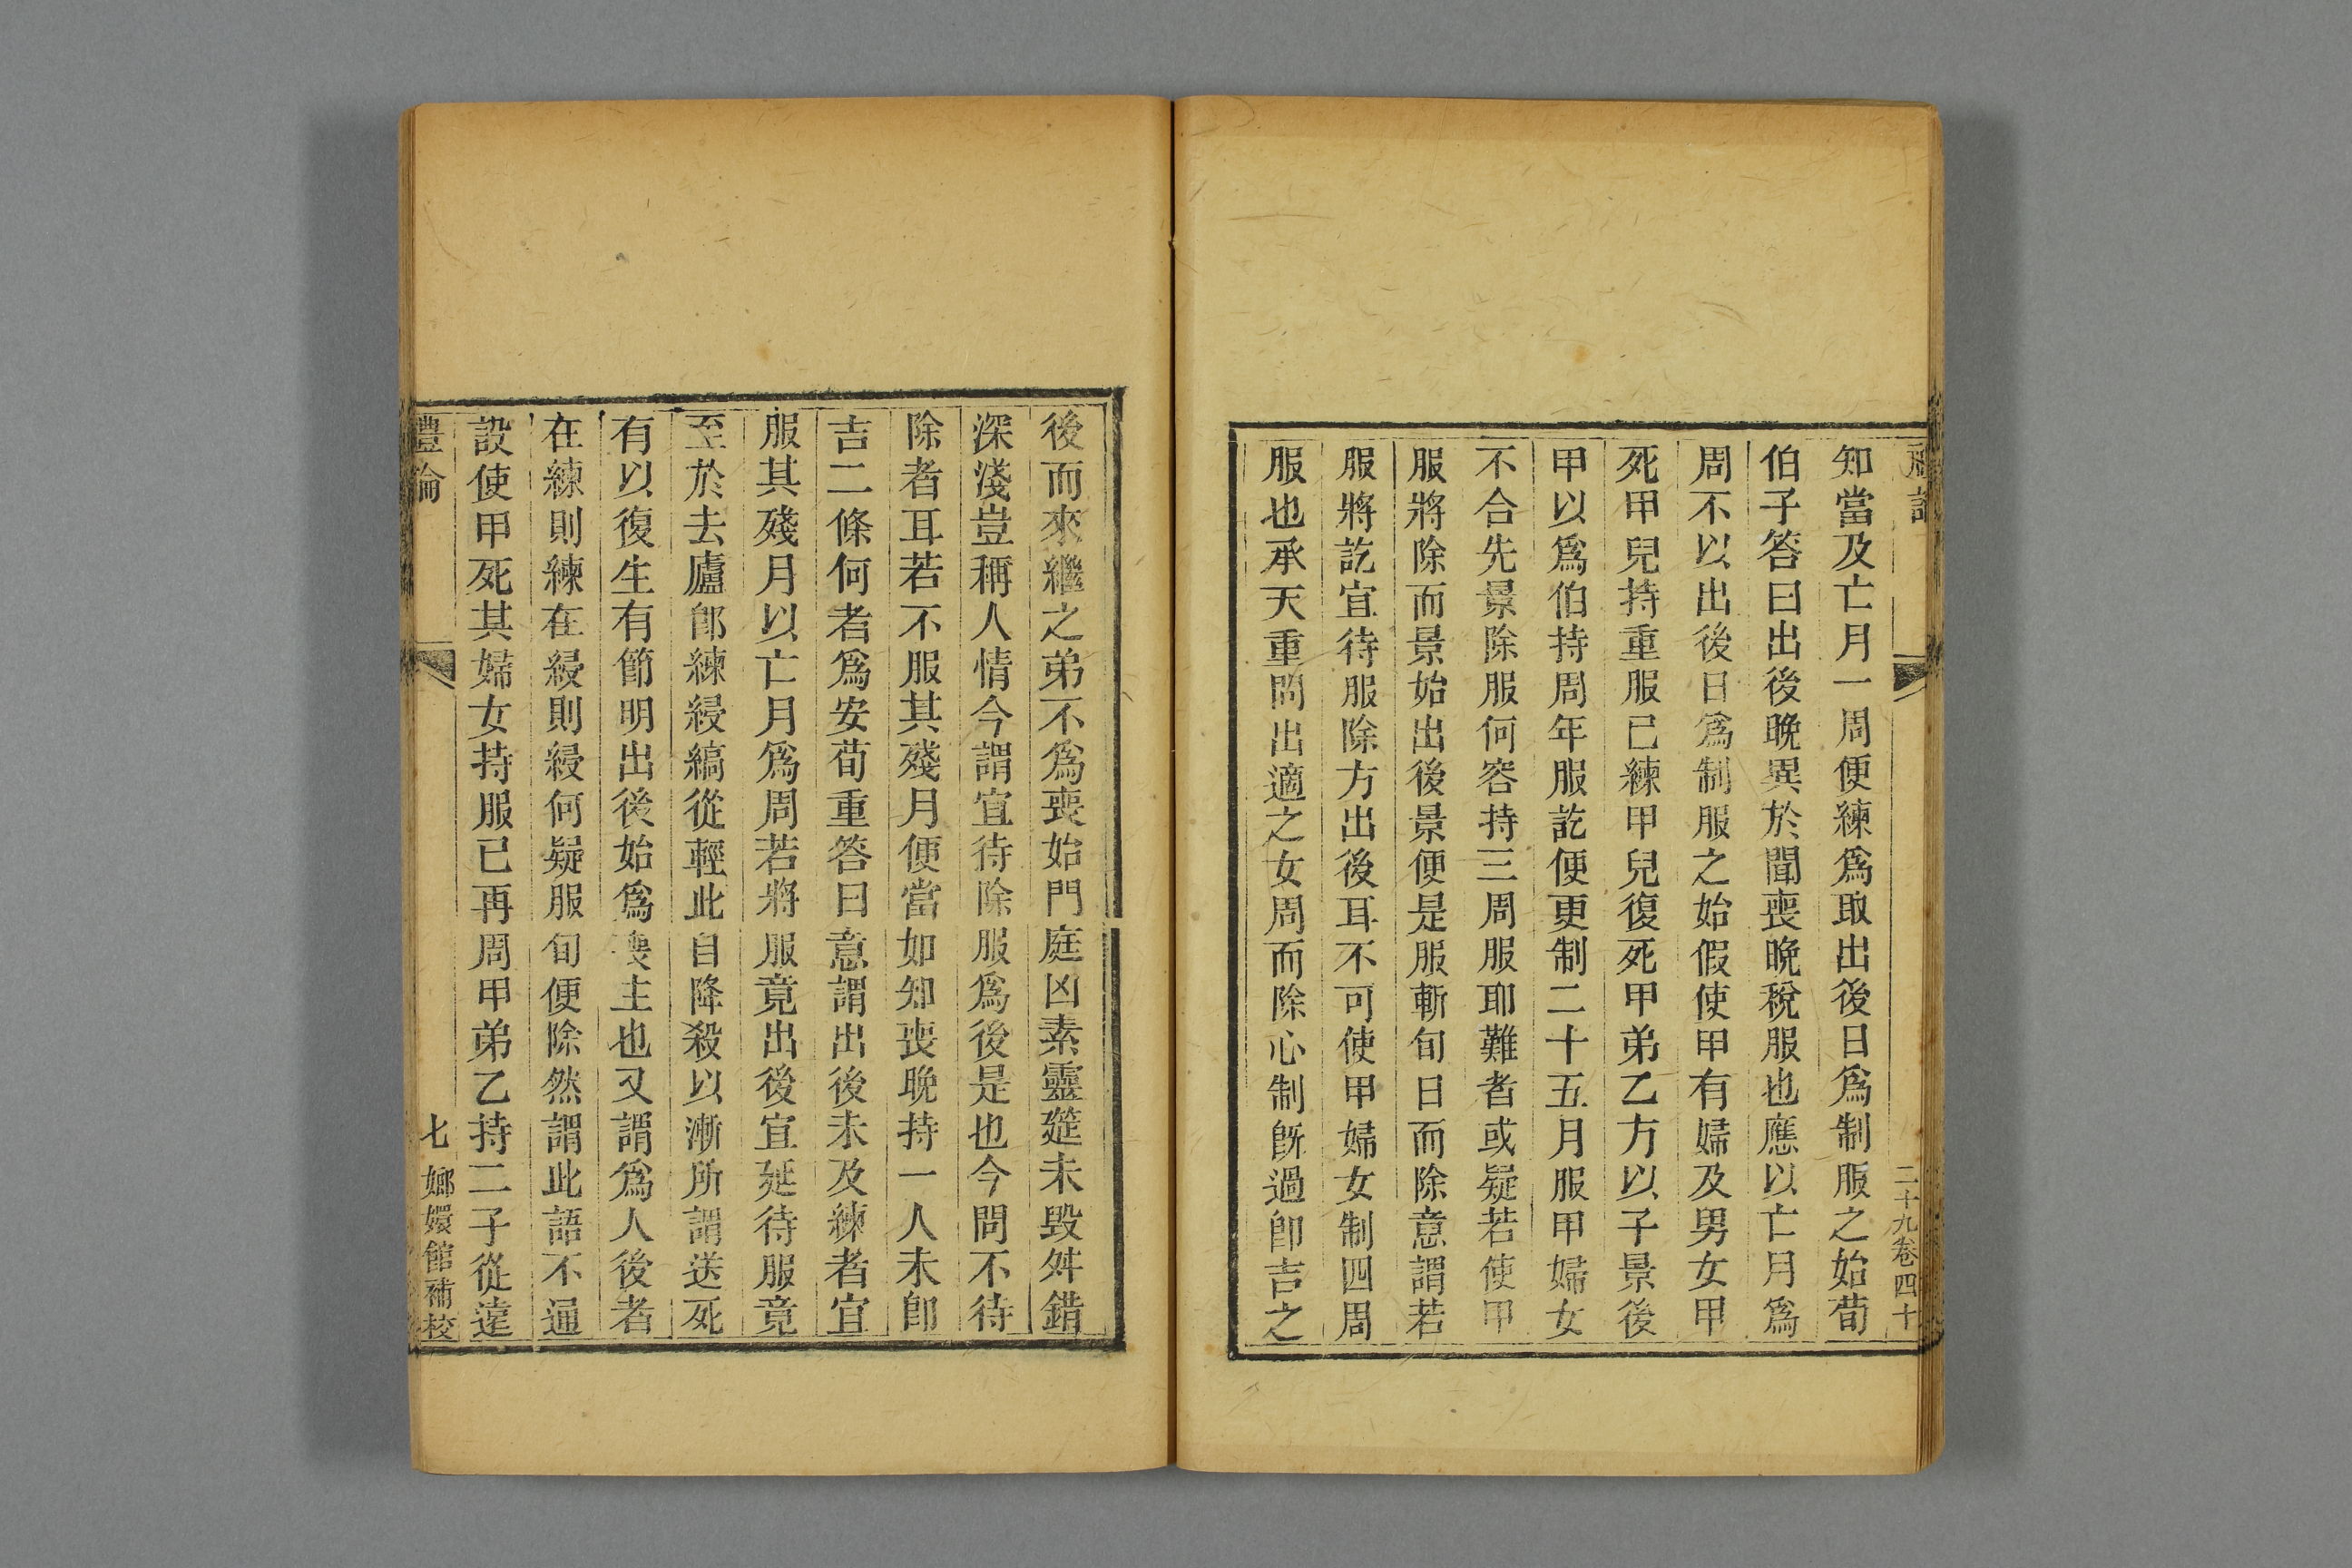 二十九卷四十
知當及亡月一周便練爲取出後日爲制服之始荀
伯子答曰出後晚異於聞喪晚稅服也應以亡月爲
周不以出後日爲制服之始假使甲有婦及男女甲
死甲兒持重服已練甲兒復死甲弟乙方以子景後
甲以爲伯持周年服訖便更制二十五月服甲婦女
不合先景除服何容持三周服耶難者或疑若使甲
服將除而景始出後景便是服斬旬日而除意謂若
服將訖宜待服除方出後耳不可使甲婦女制四周
服也承天重問出適之女周而除心制旣過卽吉之
後而來繼之弟不爲喪始門庭凶素靈筵未毀舛錯
深淺豈稱人情今謂宜待除服爲後是也今問不待
除者耳若不服其殘月便當如知喪晚持一人未卽
吉二條何者爲安荀重答曰意謂出後未及練者宜
服其殘月以亡月爲周若將服竟出後宜延待服竟
至於去廬卽練縵縞從輕此自降殺以漸所謂送死
有以復生有節明出後始爲喪主也又謂爲人後者
在練則練在縵則縵何疑服旬便除然謂此語不通
設使甲死其婦女持服已再周甲弟乙持二子從遠
禮論
七
嫏嬛館補校